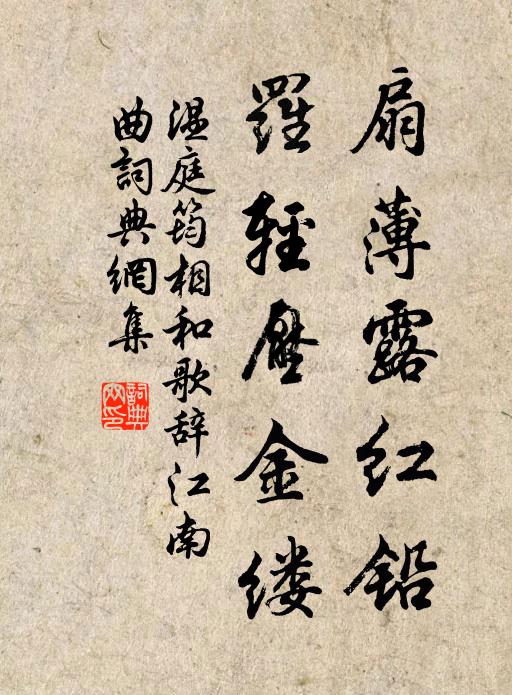 扇薄露红铅
羅輕壓金缕
温庭筠相和歌辞江南
曲詞典網集
詞典
网印